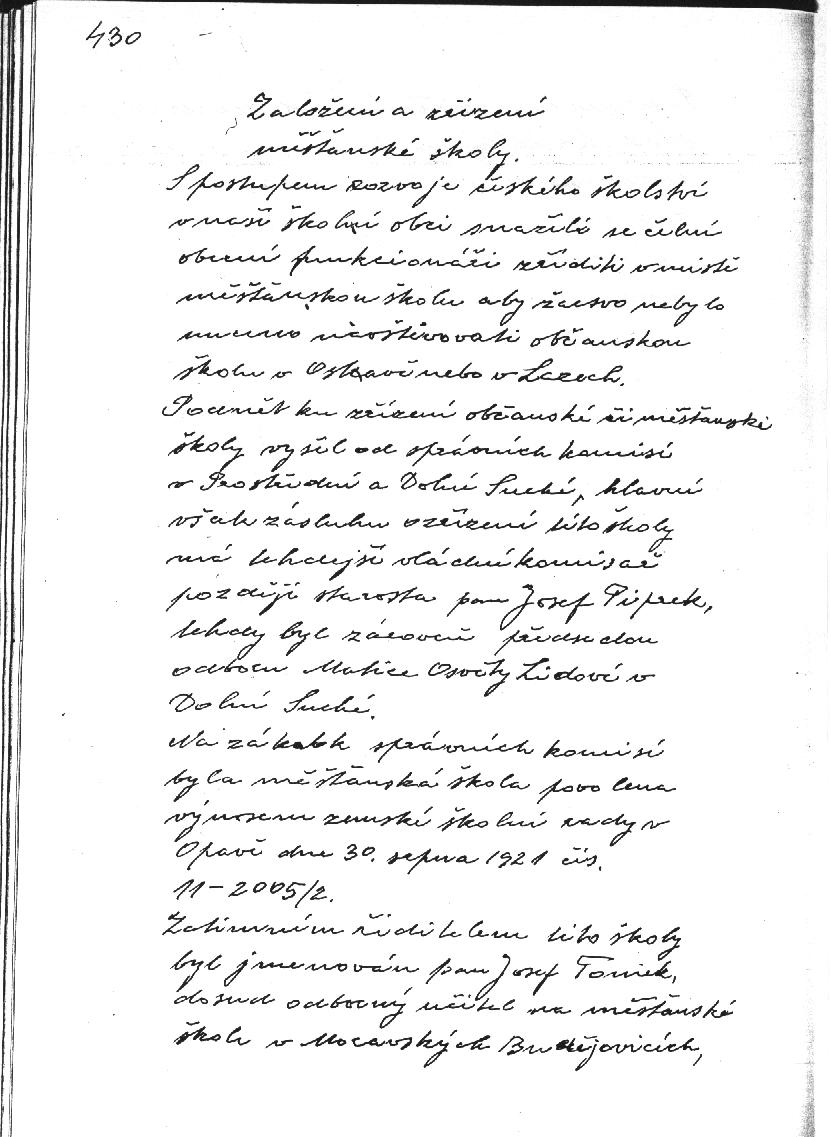 430
Založení a zřízení
měšťanské školy.
S postupem rozvoje českého školství
v naší školní obci snažili se čelní
obecní funkcionáři zříditi v místě
měšťánskou školu aby žactvo nebylo
nuceno navštěvovati občanskou
školu v Ostravě nebo v Lazech.
Podmět ku zřízení občanské či měšťanské
školy vyšel od správních komisí
v Prostřední a Dolní Suché, hlavní
však zásluhu o zřízení této školy
má tehdejší vládní komisař
později starosta pan Josef Piprek,
tehdy byl zároveň předsedou
odboru Matice Osvěty Lidové v
Dolní Suché.
Na zákrok správních komisí
byla měšťánská škola povolena
výnosem zemské školní rady v
Opavě dne 30. srpna 1921 čís.
11-2005/2.
Zatimním ředitelem této školy
byl jmenován pan Josef Tomek,
dosud odborný učitel na měšťanské
škole v Moravských Budějovicích,